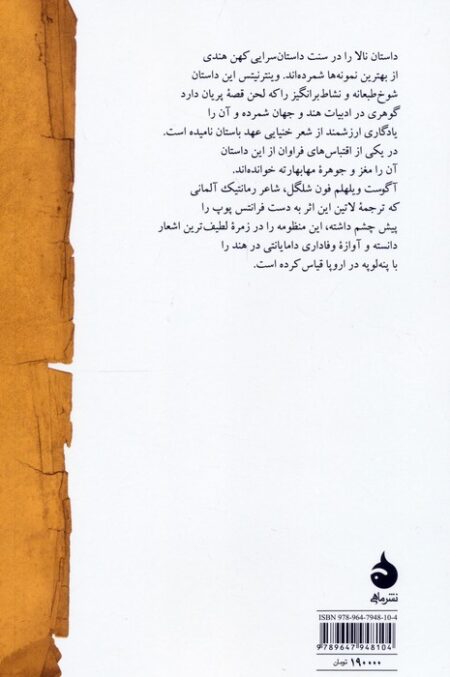 داستان نالا را در سنت داستان‌سرایی کهن هندی
از بهترین نمونه‌ها شمرده‌اند. وینترنیتس این داستان
شوخ‌طبعانه و نشاط‌برانگیز را که لحن قصهٔ پریان دارد
گوهری در ادبیات هند و جهان شمرده و آن را
یادگاری ارزشمند از شعر خنیایی عهد باستان نامیده است.
در یکی از اقتباس‌های فراوان از این داستان
آن را مغز و جوهرهٔ مهابهارته خوانده‌اند.
آگوست ویلهلم فون شلگل، شاعر رمانتیک آلمانی
که ترجمهٔ لاتین این اثر به دست فرانتس بوپ را
پیش چشم داشته، این منظومه را در زمرهٔ لطیف‌ترین اشعار
دانسته و آوازهٔ وفاداری دامایانتی در هند را
با پنه‌لوپه در اروپا قیاس کرده است.
نشرماهی
ISBN 978-964-7948-10-4
9 789647 948104
۱۹۰۰۰۰ تومان